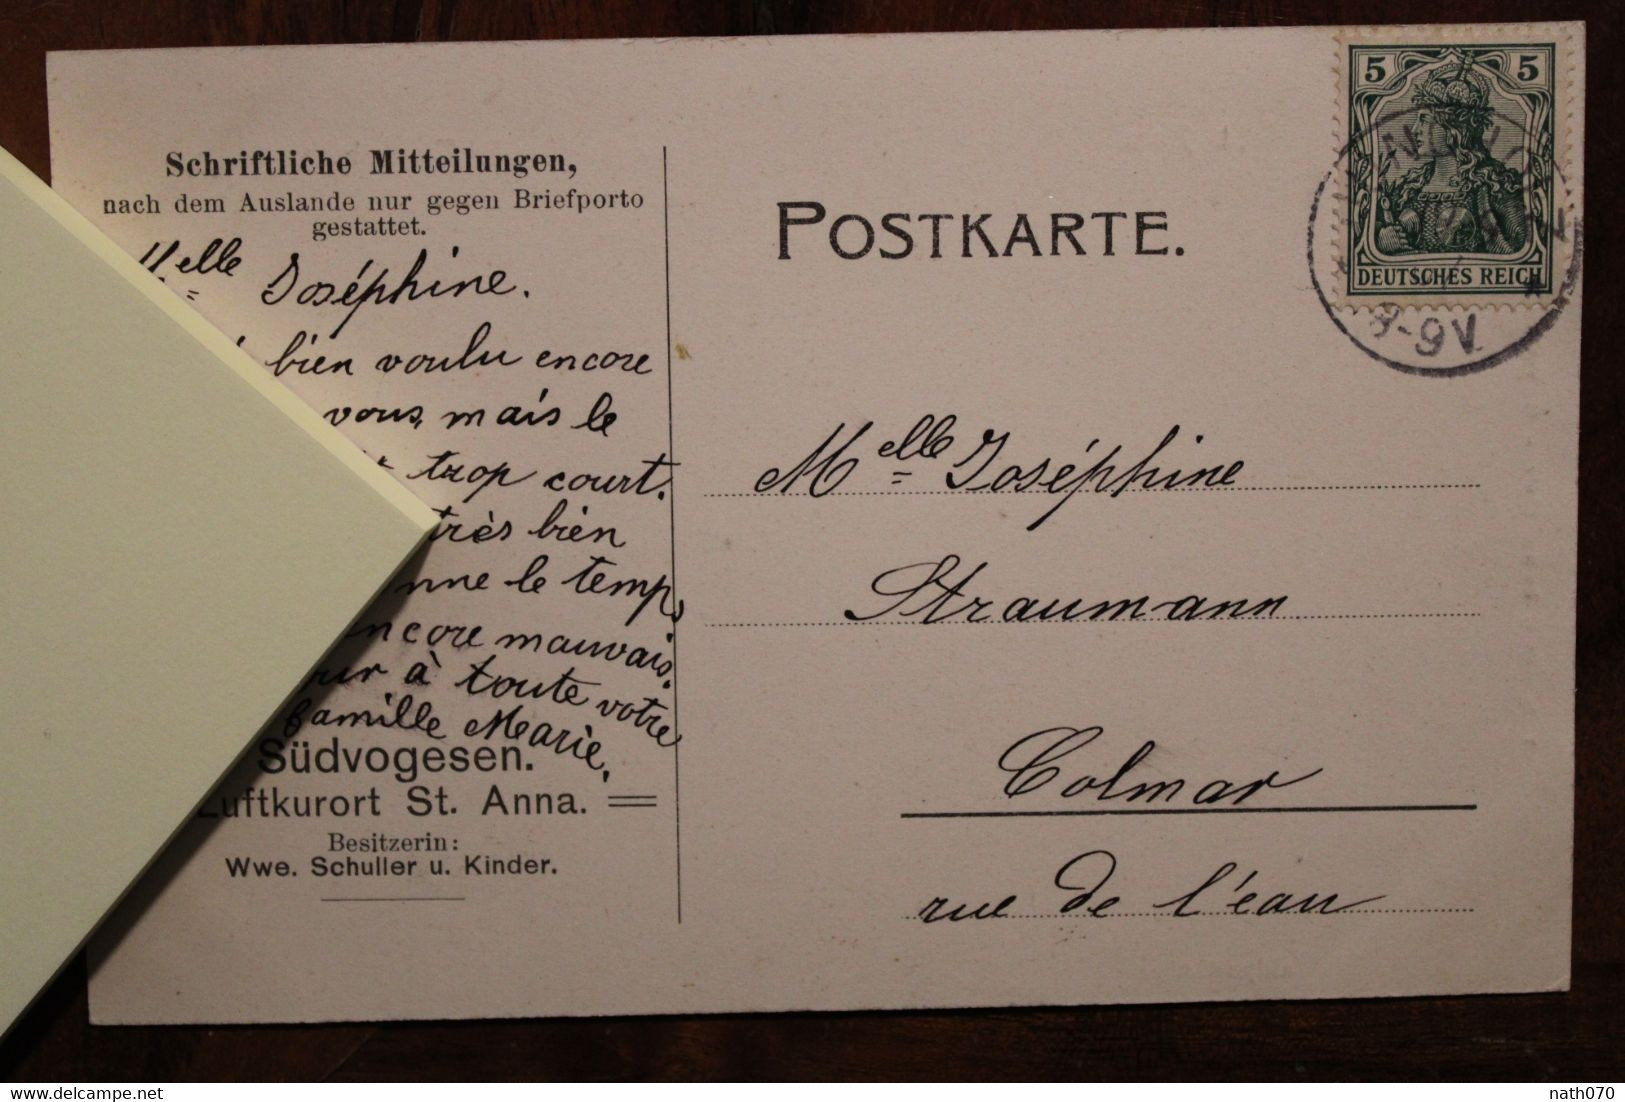 Schriftliche Mitteilungen,
nach dem Auslande nur gegen Briefporto
gestattet.
Melle Joséphine.
bien voulu encore
vous, mais le
trop court.
très bien
le temps
encore mauvais.
à toute votre
famille Marie.
Südvogesen.
Luftkurort St. Anna.
Besitzerin:
Wwe. Schuller u. Kinder.
POSTKARTE.
5 5
DEUTSCHES REICH
8-9V
Melle Joséphine
Straumann
Colmar
rue de l'eau
delcampe.net
nath070